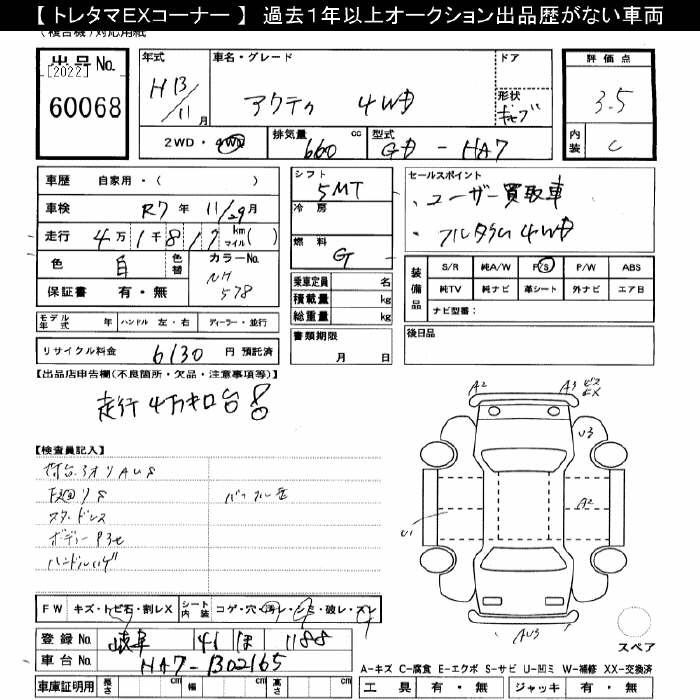 【トレタマEXコーナー】 過去1年以上オークション出品歴がない車両
(複合機)対応用紙
出品No.
[2022]
60068
年式
H13/11月
車名・グレード
アクティ 4WD
ドア
形状
キャブ
2WD・4WD
排気量
660 cc
型式
GD-HA7
評価点
3.5
内装
C
車歴 自家用・( )
車検 R7年 11/29月
走行 4万1千817 km マイル( )
色 白 色替
カラーNo.
NH578
保証書 有・無
モデル年式 年 ハンドル 左・右 ディーラー・並行
リサイクル料金 6130 円 預託済
シフト
5MT
冷房
燃料
G
乗車定員 名
積載量 kg
総重量 kg
書類期限
月 日
セールスポイント
・ユーザー買取車
・フルタイム4WD
装備品
S/R 純A/W P/S P/W ABS
純TV 純ナビ 革シート 外ナビ エア日
ナビ型番:
後日品
【出品店申告欄(不良箇所・欠品・注意事項等)】
走行4万キロ台
【検査員記入】
スタッドレス
FW キズ・トビ石・割レX
シート内装 コゲ・穴・汚レ・シミ・破レ・スレ
登録No. 岐阜 41 ほ 1188
車台No. HA7-1302165
車庫証明用 長さ cm 幅 cm 高さ cm
A2
A3 ビスEX
U3
A2
U1
AU3
スペア
A-キズ C-腐食 E-エクボ S-サビ U-凹ミ W-補修 XX-交換済
工具 有・無 ジャッキ 有・無